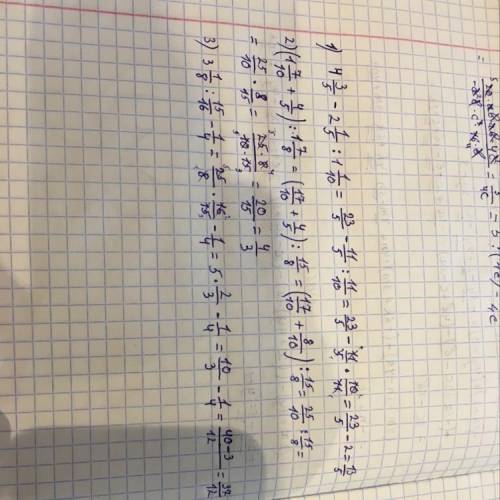 1) 4 3/5 - 2 1/5 : 1 1/10 = 23/5 - 11/5 : 11/10 = 23/5 - 11/5 · 10/11 = 23/5 - 2 = 13/5
2) (1 7/10 + 4/5) : 1 7/8 = (17/10 + 4/5) : 15/8 = (17/10 + 8/10) : 15/8 = 25/10 : 15/8 =
= 25/10 · 8/15 = 25·8/10·15 = 20/15 = 4/3
3) 3 1/8 : 15/16 - 1/4 = 25/8 · 16/15 - 1/4 = 5 · 2/3 - 1/4 = 10/3 - 1/4 = 40-3/12 = 37/12